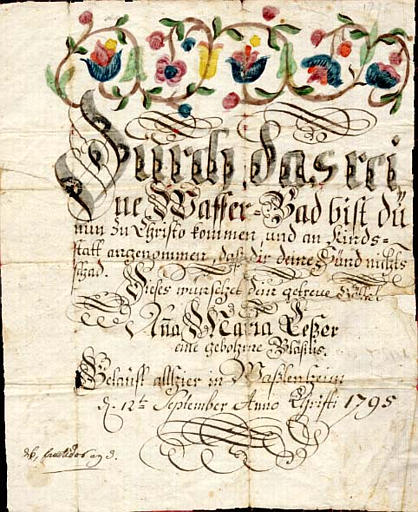 Durch das rei
ne Wasser-Bad bist dü
nun zu Christo kommen, und an Kinds-
statt angenommen, daß dir deine Sünd nichts
schad.
Dieses wünschet dein getreue
Aña Maria
eine gebohrne Blasius.
Getaufft allhier in
d. 12ts September Anno Christi 1795